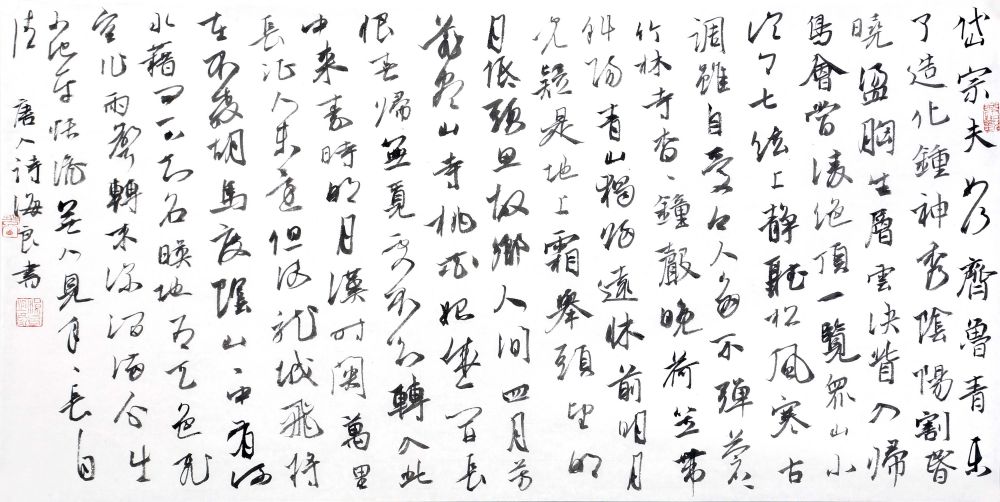 岱宗夫如何齊魯青未
了造化鍾神秀陰陽割昏
曉盪胸生層雲決眥入歸
鳥會當凌絕頂一覽眾山小
泠々七弦上靜聽松風寒古
調雖自愛今人多不彈蒼々
竹林寺杳々鐘聲晚荷笠帶
斜陽青山獨歸遠床前明月
光疑是地上霜舉頭望明
月低頭思故鄉人間四月芳
菲盡山寺桃花始盛開長
恨春歸無覓處不知轉入此
中來秦時明月漢時關萬里
長征人未還但使龍城飛將
在不教胡馬度陰山々中有流
水藉問不知名暎地為天色飛
空作雨聲轉來深澗滿分出
小池平恬澹無人見年々長自
清
唐人詩海良書